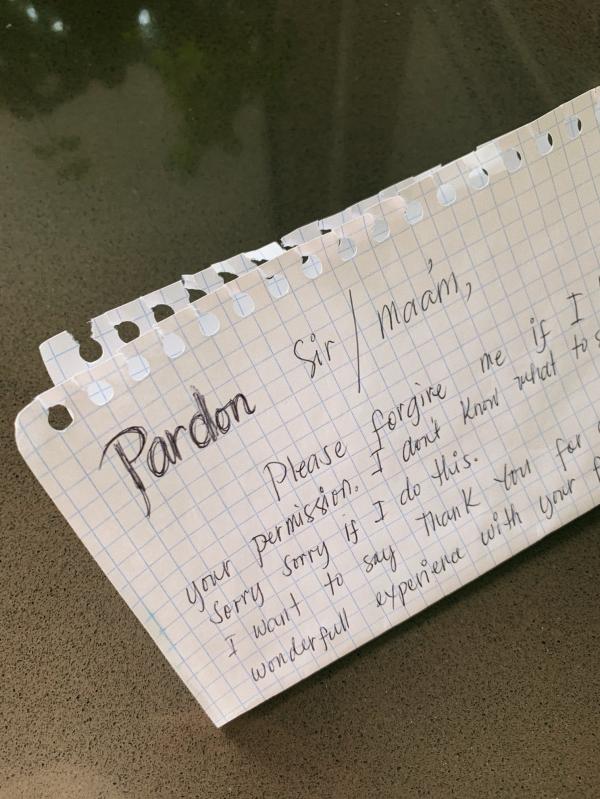 Pardon Sir / Ma'am,
Please forgive me if I
your permission. I don't know what to
sorry sorry if I do this.
I want to say thank you for
wonderfull experience with your